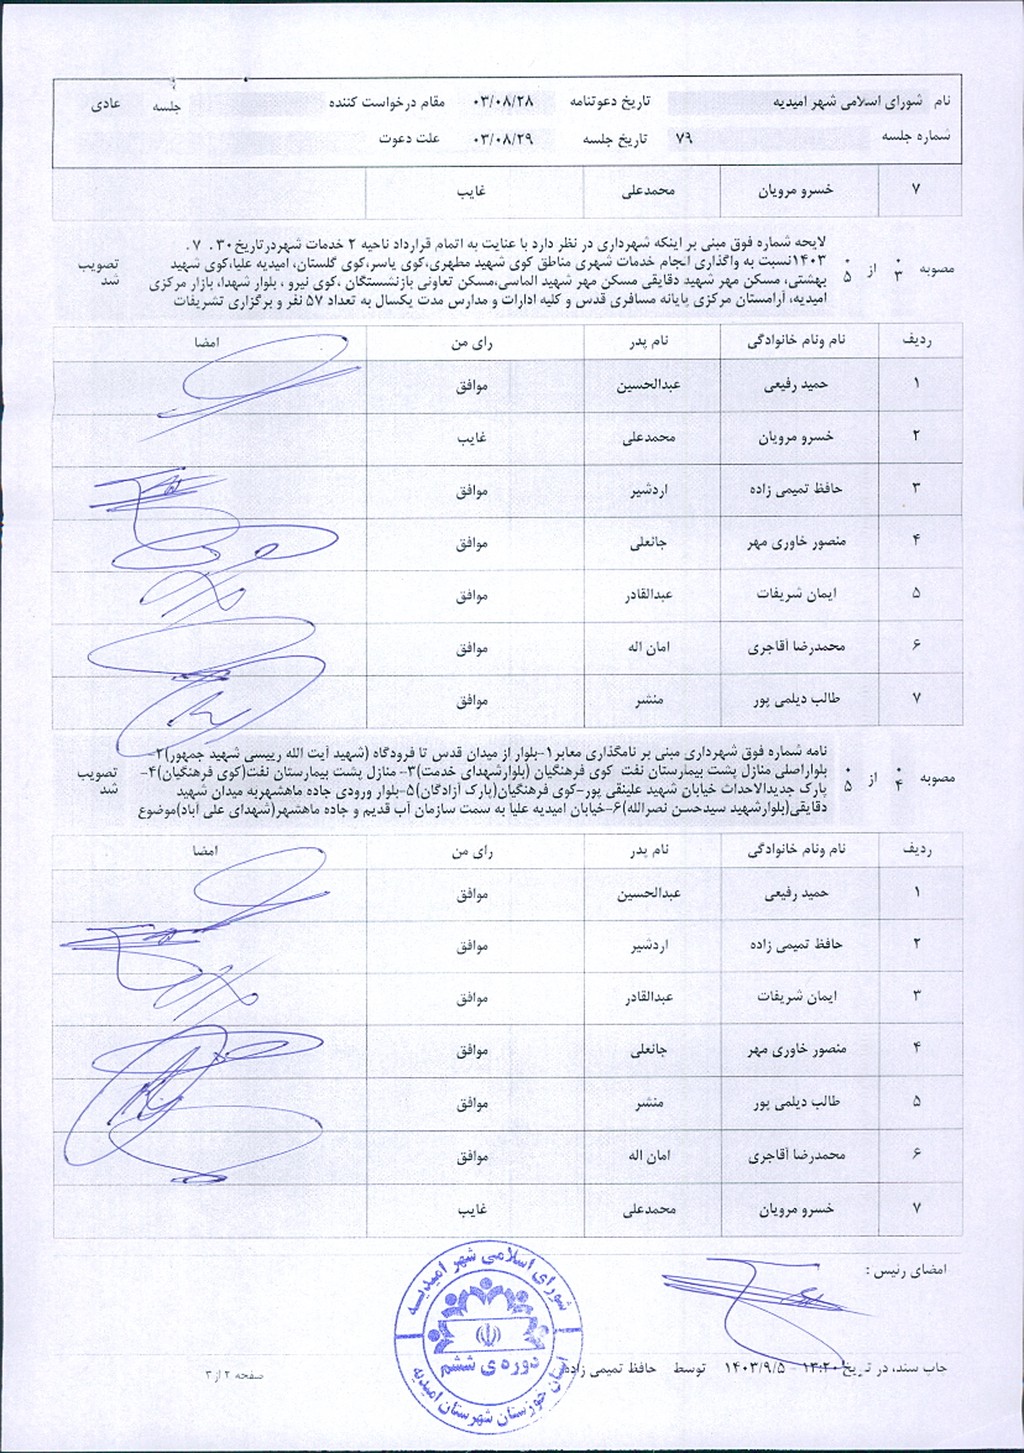 نام شورای اسلامی شهر امیدیه تاریخ دعوتنامه ۰۳/۰۸/۲۸ مقام درخواست کننده جلسه عادی
شماره جلسه ۷۹ تاریخ جلسه ۰۳/۰۸/۲۹ علت دعوت
۷ خسرو مرویان محمدعلی غایب
مصوبه ۰۳ از ۰۵ تصویب شد
لایحه شماره فوق مبنی بر اینکه شهرداری در نظر دارد با عنایت به اتمام قرارداد ناحیه ۲ خدمات شهردرتاریخ۳۰. ۷.
۱۴۰۳نسبت به واگذاری انجام خدمات شهری مناطق کوی شهید مطهری،کوی یاسر،کوی گلستان، امیدیه علیا،کوی شهید
بهشتی، مسکن مهر شهید دقایقی مسکن مهر شهید الماسی،مسکن تعاونی بازنشستگان ،کوی نیرو ، بلوار شهدا، بازار مرکزی
امیدیه، آرامستان مرکزی پایانه مسافری قدس و کلیه ادارات و مدارس مدت یکسال به تعداد ۵۷ نفر و برگزاری تشریفات
ردیف نام ونام خانوادگی نام پدر رای من امضا
۱ حمید رفیعی عبدالحسین موافق
۲ خسرو مرویان محمدعلی غایب
۳ حافظ تمیمی زاده اردشیر موافق
۴ منصور خاوری مهر جانعلی موافق
۵ ایمان شریفات عبدالقادر موافق
۶ محمدرضا آقاجری امان اله موافق
۷ طالب دیلمی پور منشر موافق
مصوبه ۰۴ از ۰۵ تصویب شد
نامه شماره فوق شهرداری مبنی بر نامگذاری معابر۱-بلوار از میدان قدس تا فرودگاه (شهید آیت الله رییسی شهید جمهور)۲-
بلواراصلی منازل پشت بیمارستان نفت کوی فرهنگیان (بلوارشهدای خدمت)۳-- منازل پشت بیمارستان نفت(کوی فرهنگیان)۴-
پارک جدیدالاحداث خیابان شهید علینقی پور-کوی فرهنگیان(پارک آزادگان)۵-بلوار ورودی جاده ماهشهربه میدان شهید
دقایقی(بلوارشهید سیدحسن نصرالله)۶-خیابان امیدیه علیا به سمت سازمان آب قدیم و جاده ماهشهر(شهدای علی آباد)موضوع
ردیف نام ونام خانوادگی نام پدر رای من امضا
۱ حمید رفیعی عبدالحسین موافق
۲ حافظ تمیمی زاده اردشیر موافق
۳ ایمان شریفات عبدالقادر موافق
۴ منصور خاوری مهر جانعلی موافق
۵ طالب دیلمی پور منشر موافق
۶ محمدرضا آقاجری امان اله موافق
۷ خسرو مرویان محمدعلی غایب
امضای رئیس :
شورای اسلامی شهر امیدیه
دوره ی ششم
استان خوزستان شهرستان امیدیه
چاپ سند، در تاریخ ۱۳:۲۰ - ۱۴۰۳/۹/۵ توسط حافظ تمیمی زاده
صفحه ۲ از ۳